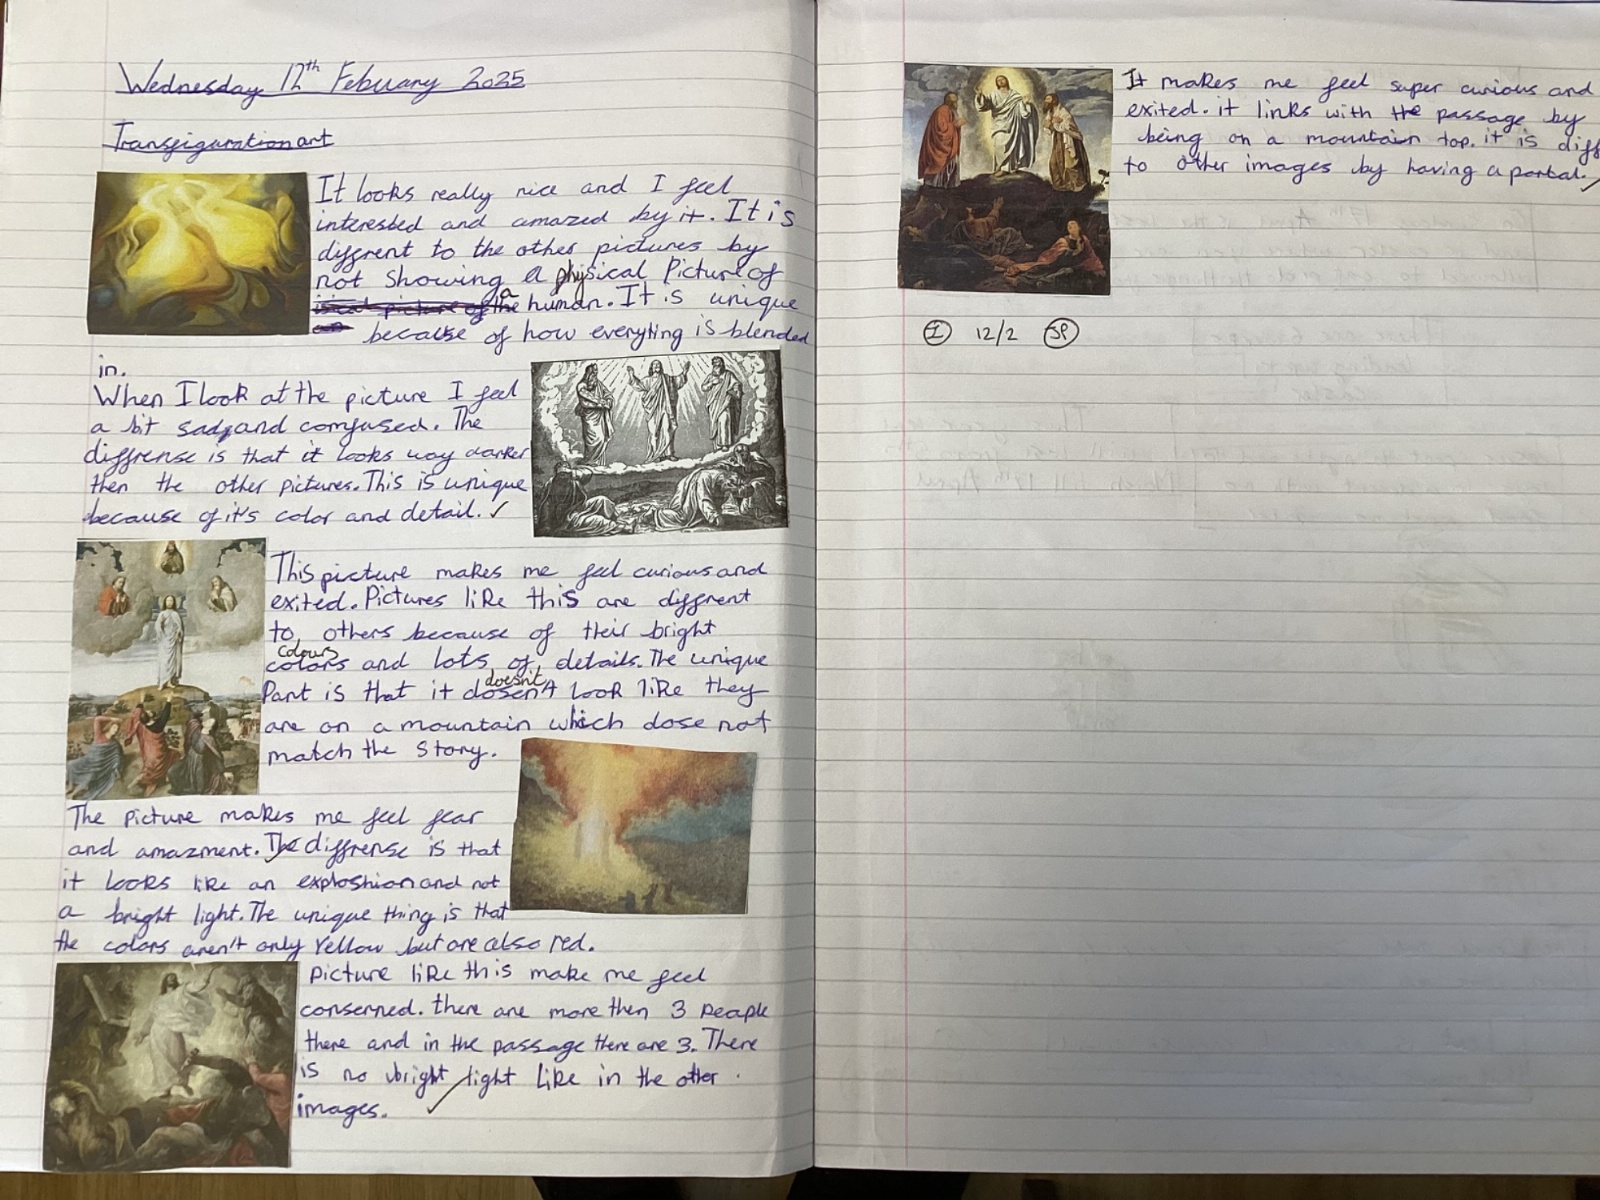 Wednesday 12th Febuary 2025
Transfiguration art
It looks really nice and I feel
interested and amazed by it. It is
diffrent to the other pictures by
not showing a physical Picture of
a human. It is unique
because of how everyting is blended
in.
When I look at the picture I feel
a bit sad and comfused. The
diffrense is that it looks way darker
then the other pictures. This is unique
because of it's color and detail.
This picture makes me feel curious and
exited. Pictures like this are diffrent
to others because of their bright
colours
colors and lots of details. The unique
doesn't
Part is that it dosen't look like they
are on a mountain which dose not
match the story.
The Picture makes me feel fear
and amazment. The diffrense is that
it looks like an exploshion and not
a bright light. The unique thing is that
the colors aren't only Yellow but are also red.
Picture like this make me feel
conserned. there are more then 3 people
there and in the passage there are 3. There
is no bright light like in the other
images.
It makes me feel super curious and
exited. it links with the passage by
being on a mountain top. it is diff
to other images by having a portal.
I 12/2 SP